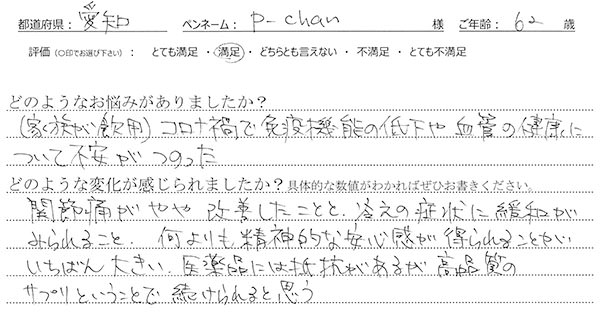 都道府県：愛知 ペンネーム：P-chan 様 ご年齢：62 歳
評価（○印でお選び下さい）：とても満足・満足・どちらとも言えない・不満足・とても不満足
どのようなお悩みがありましたか？
（家族が飲用）コロナ禍で免疫機能の低下や血管の健康に
ついて不安がつのった
どのような変化が感じられましたか？具体的な数値がわかればぜひお書きください。
関節痛がやや改善したことと、冷えの症状に緩和が
みられること 何よりも精神的な安心感が得られることがい
いちばん大きい。医薬品には抵抗があるが高品質の
サプリということで続けられると思う